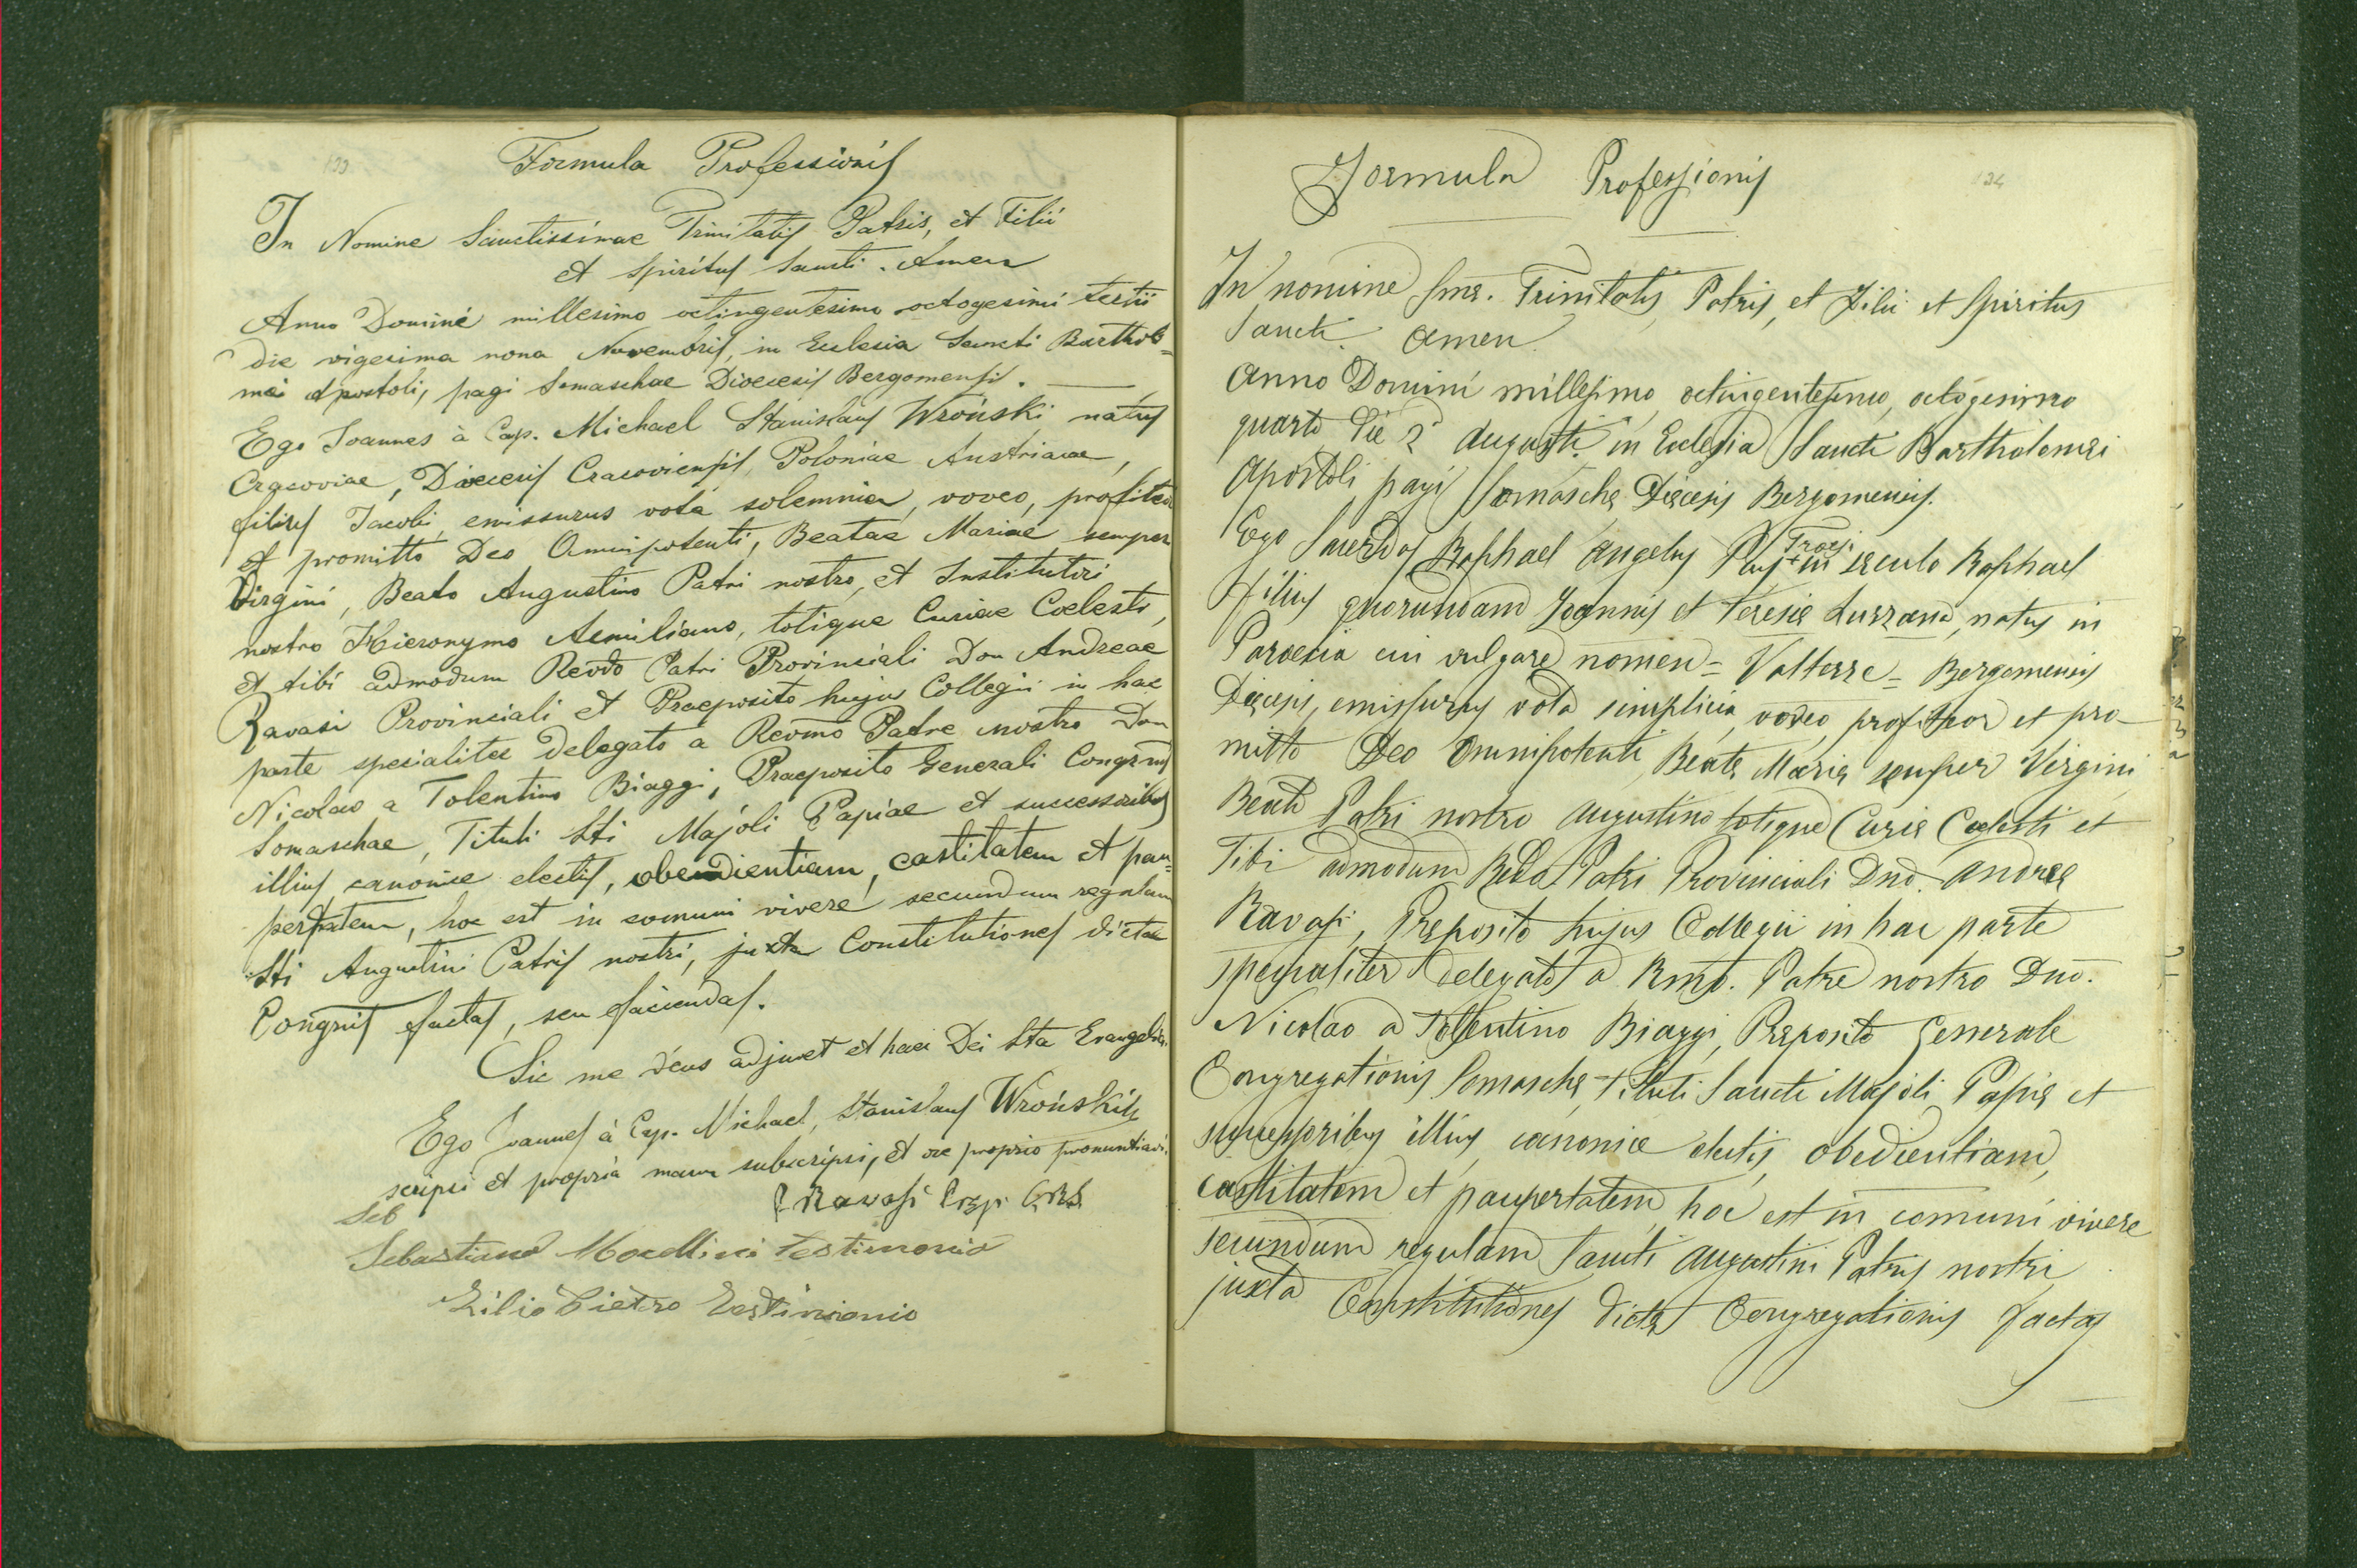 133
Formula Professionis
In Nomine Sanctissimae Trinitatis Patris, et Filii
et Spiritus Sancti. Amen
Anno Domini millesimo octingentesimo octogesimi tertii
die vigesima nona Novembris, in Eclesia Sancti Bartholo=
mei Apostoli, pagi Somaschae Dioecesis Bergomensis.
Ego Joannes à Cap. Michael Stanislaus Wroński natus
Cracoviae, Dioecesis Cracoviensis, Poloniae Austriacae,
filius Jacobi, emissurus vota solemnia, voveo, profiteor
et promitto Deo Omnipotenti, Beatae Mariae semper
Virgini, Beato Augustino Patri nostro, et Institutori
nostro Hieronymo Aemiliano, totique Curiae Coelesti,
et tibi admodum Revdo Patri Provinciali Don Andreae
Ravasi Provinciali et Praeposito hujus Collegii in hac
parte specialiter delegato a Revmo Patre nostro Don
Nicolao a Tolentino Biaggi, Praeposito Generali Congrnis
Somaschae, Tituli Sti Majoli Papiae et successoribus
illius canonice electis, obendientiam, castitatem et pau=
pertatem, hoc est in comuni vivere secundum regulam
Sti Augustini Patris nostri, juxta Constitutiones dictae
Congrnis factas, seu faciendas.
Sic me deus adjuvet et haec Dei Sta Evangelia.
Ego Joannes à Cap. Michael, Stanislaus Wroński
scripsi et propria manu subscripsi, et ore proprio pronuntiavi.
P Ravasi Prep. CRS
Seb
Sebastiano Mocellini testimonio
Lilio Pietro Testimonio
134
Formula Professionis
In nomine Sme. Trinitatis Patris, et Filii et Spiritus
Sancti Amen.
Anno Domini millesimo octingentesimo, octogesimo
quarto die 2 Augusti in Eclesia Sancti Bartholemei
Apostoli pagi Somasche Diecesis Bergomensis.
Ego Sacerdos Raphael Angelus Pius + in seculo Raphael
Froesi
Filius quorundam Joannis et Teresie Luzzana, natus in
Paroecia cui vulgare nomen = Valtesse = Bergomensis
Diecesis, emissurus vota simplicia, voveo, profiteor et pro-
mitto Deo Omnipotenti, Beate Marie semper Virgini
Beato Patri nostro Augustino totique Curie Coelesti et
Tibi admodum Rdo Patri Provinciali Dno. Andree
Ravasi, Preposito hujus Collegii in hac parte
specialiter delegato a Rmo. Patre nostro Dno.
Nicolao a Tolentino Biaggi, Preposito Generale
Congregationis Somasche, tituli Sancti Majoli Papie et
successoribus illius canonice electis, obedientiam,
castitatem et paupertatem, hoc est in comuni vivere
secundum regulam Sancti Augustini Patris nostri
juxta Constitutiones dicte Congregationis factas